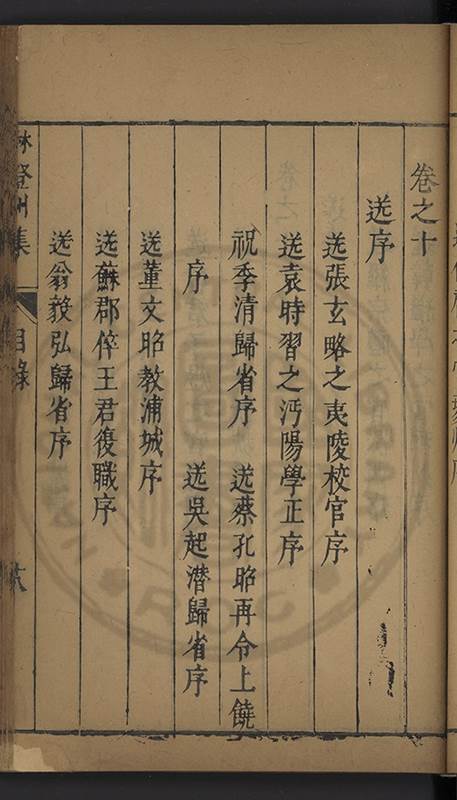 卷之十
送序
送張玄略之夷陵校官序
送袁時習之沔陽學正序
祝季清歸省序　送蔡孔昭再令上饒
序　送吳起潛歸省序
送董文昭教浦城序
送蘇郡倅王君復職序
送翁毅弘歸省序
林登州集　目錄